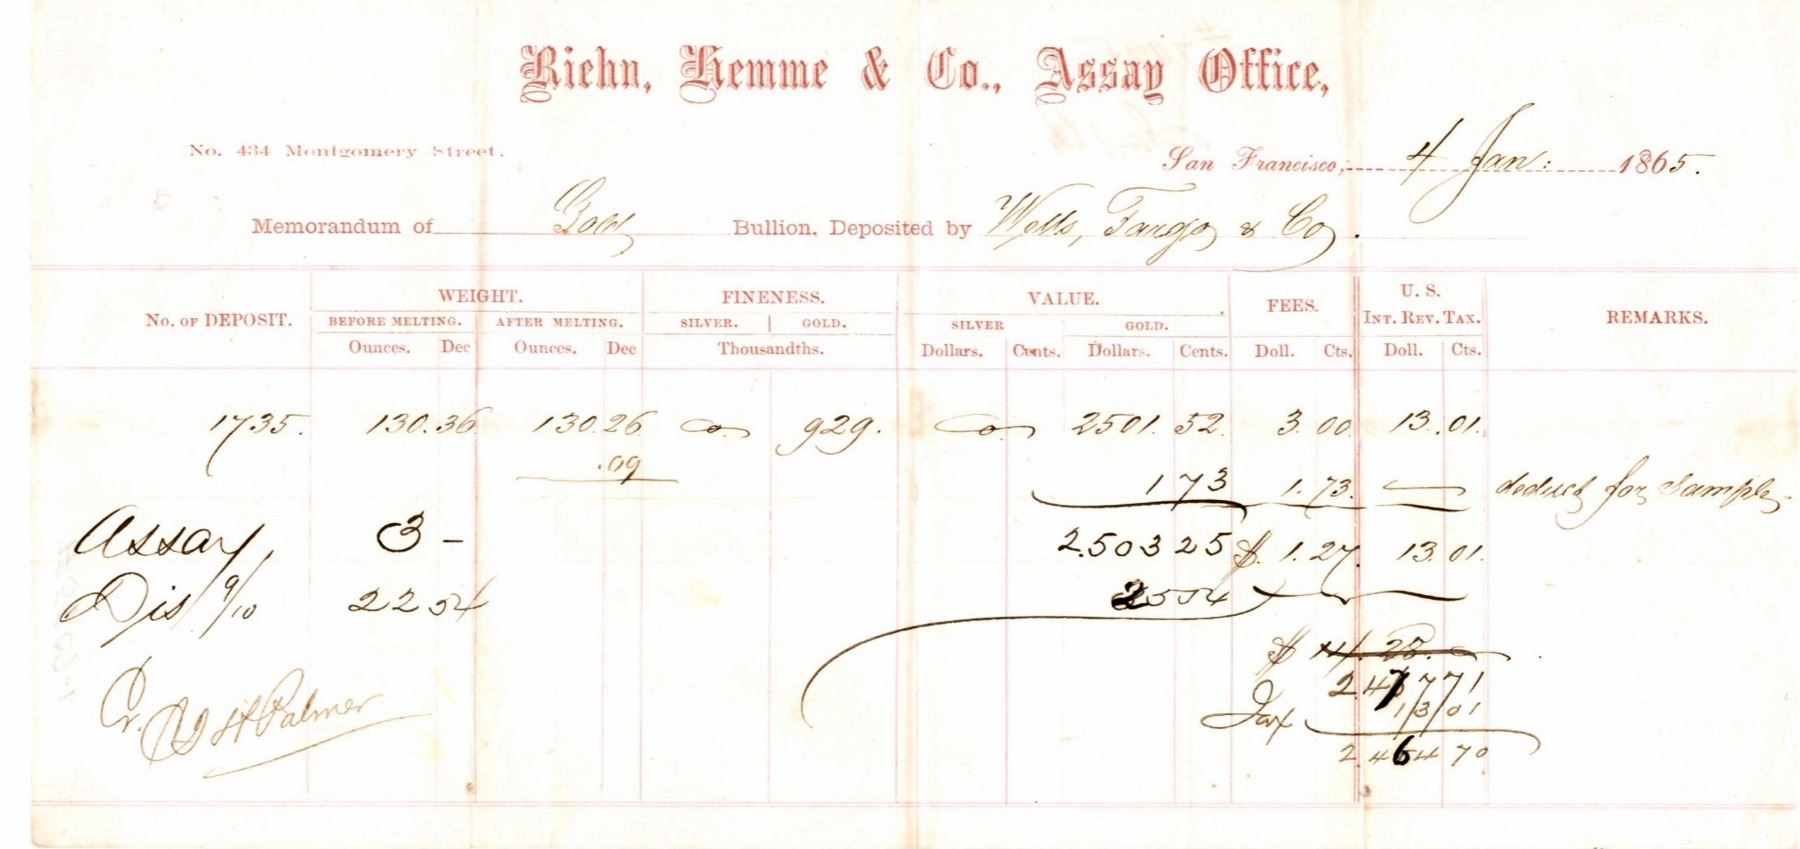 Riehn, Hemme & Co., Assay Office,
No. 434 Montgomery Street.
San Francisco, 4 Jan: 1865.
Memorandum of Gold Bullion, Deposited by Wells, Fargo & Co.
No. OF DEPOSIT. WEIGHT. FINENESS. VALUE. FEES. U. S. INT. REV. TAX. REMARKS.
BEFORE MELTING. AFTER MELTING. SILVER. GOLD. SILVER GOLD.
Ounces. Dec Ounces. Dec Thousandths. Dollars. Cents. Dollars. Cents. Doll. Cts. Doll. Cts.
1735. 130.36 130.26 929. 2501. 52. 3.00 13.01.
.09
173 1.73. deduct for Sample.
Assay, 3 - 2.503 25 $ 1.27. 13.01.
Dis 9/10 22 54 25 54
$ 14.28.
2 47 7 71
Tax 13 01
2 464 70
Cr. H Palmer